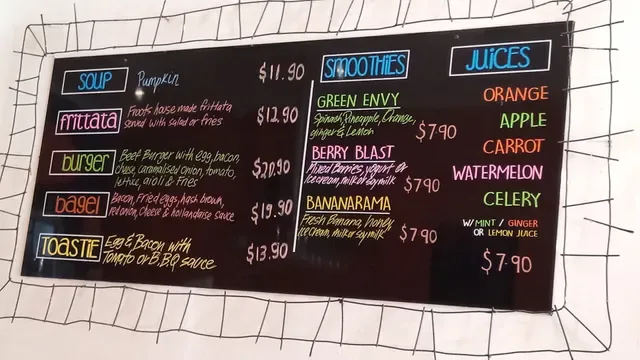 SOUP Pumpkin $11.90
frittata Froots house made frittata
served with salad or fries $12.90
burger Beef Burger with egg, bacon,
cheese, caramalised onion, tomato,
lettice, aioli & Fries $20.90
bagel Bacon, Fried eggs, hash brown,
red onion, cheese & hollandaise sauce $19.90
TOASTIE Egg & Bacon with
Tomato or B.B.Q sauce $13.90
SMOOTHIES
GREEN ENVY
Spinash, Pineapple, Orange,
ginger & Lemon $7.90
BERRY BLAST
Mixed Barries, yogurt or
ice cream, milk or soy milk $7.90
BANANARAMA
Fresh Banana, honey
ice cream, milk or soy milk $7.90
JUICES
ORANGE
APPLE
CARROT
WATERMELON
CELERY
W/MINT / GINGER
OR LEMON JUICE
$7.90